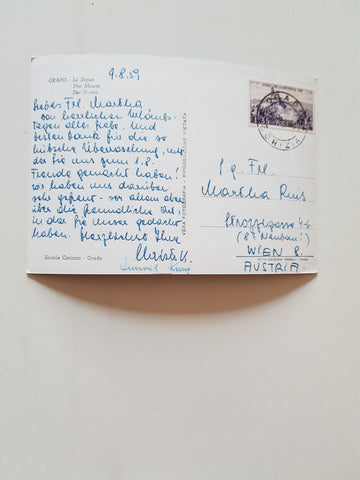 GRADO - La Diga
The Mound
Der Damm
9.8.59
Liebes Frl. Martha
von herrlichen Urlaubs-
tagen alles Liebe. Und
besten Dank für die so
hübsche Überraschung, mit
der Sie uns zum 1.8.
Freude gemacht haben!
wir haben uns darüber
sehr gefreut - vor allem aber
über die freundliche Art,
in der Sie unser gedacht
haben. Herzlichst Ihre
Scuola Corazza - Grado
VERA FOTOGRAFIA - RIPRODUZIONE VIETATA
GRADO
GORIZIA
Frl.
Martha
Strozzigasse 4-6
(87 Neubau!)
WIEN 8.
AUSTRIA.